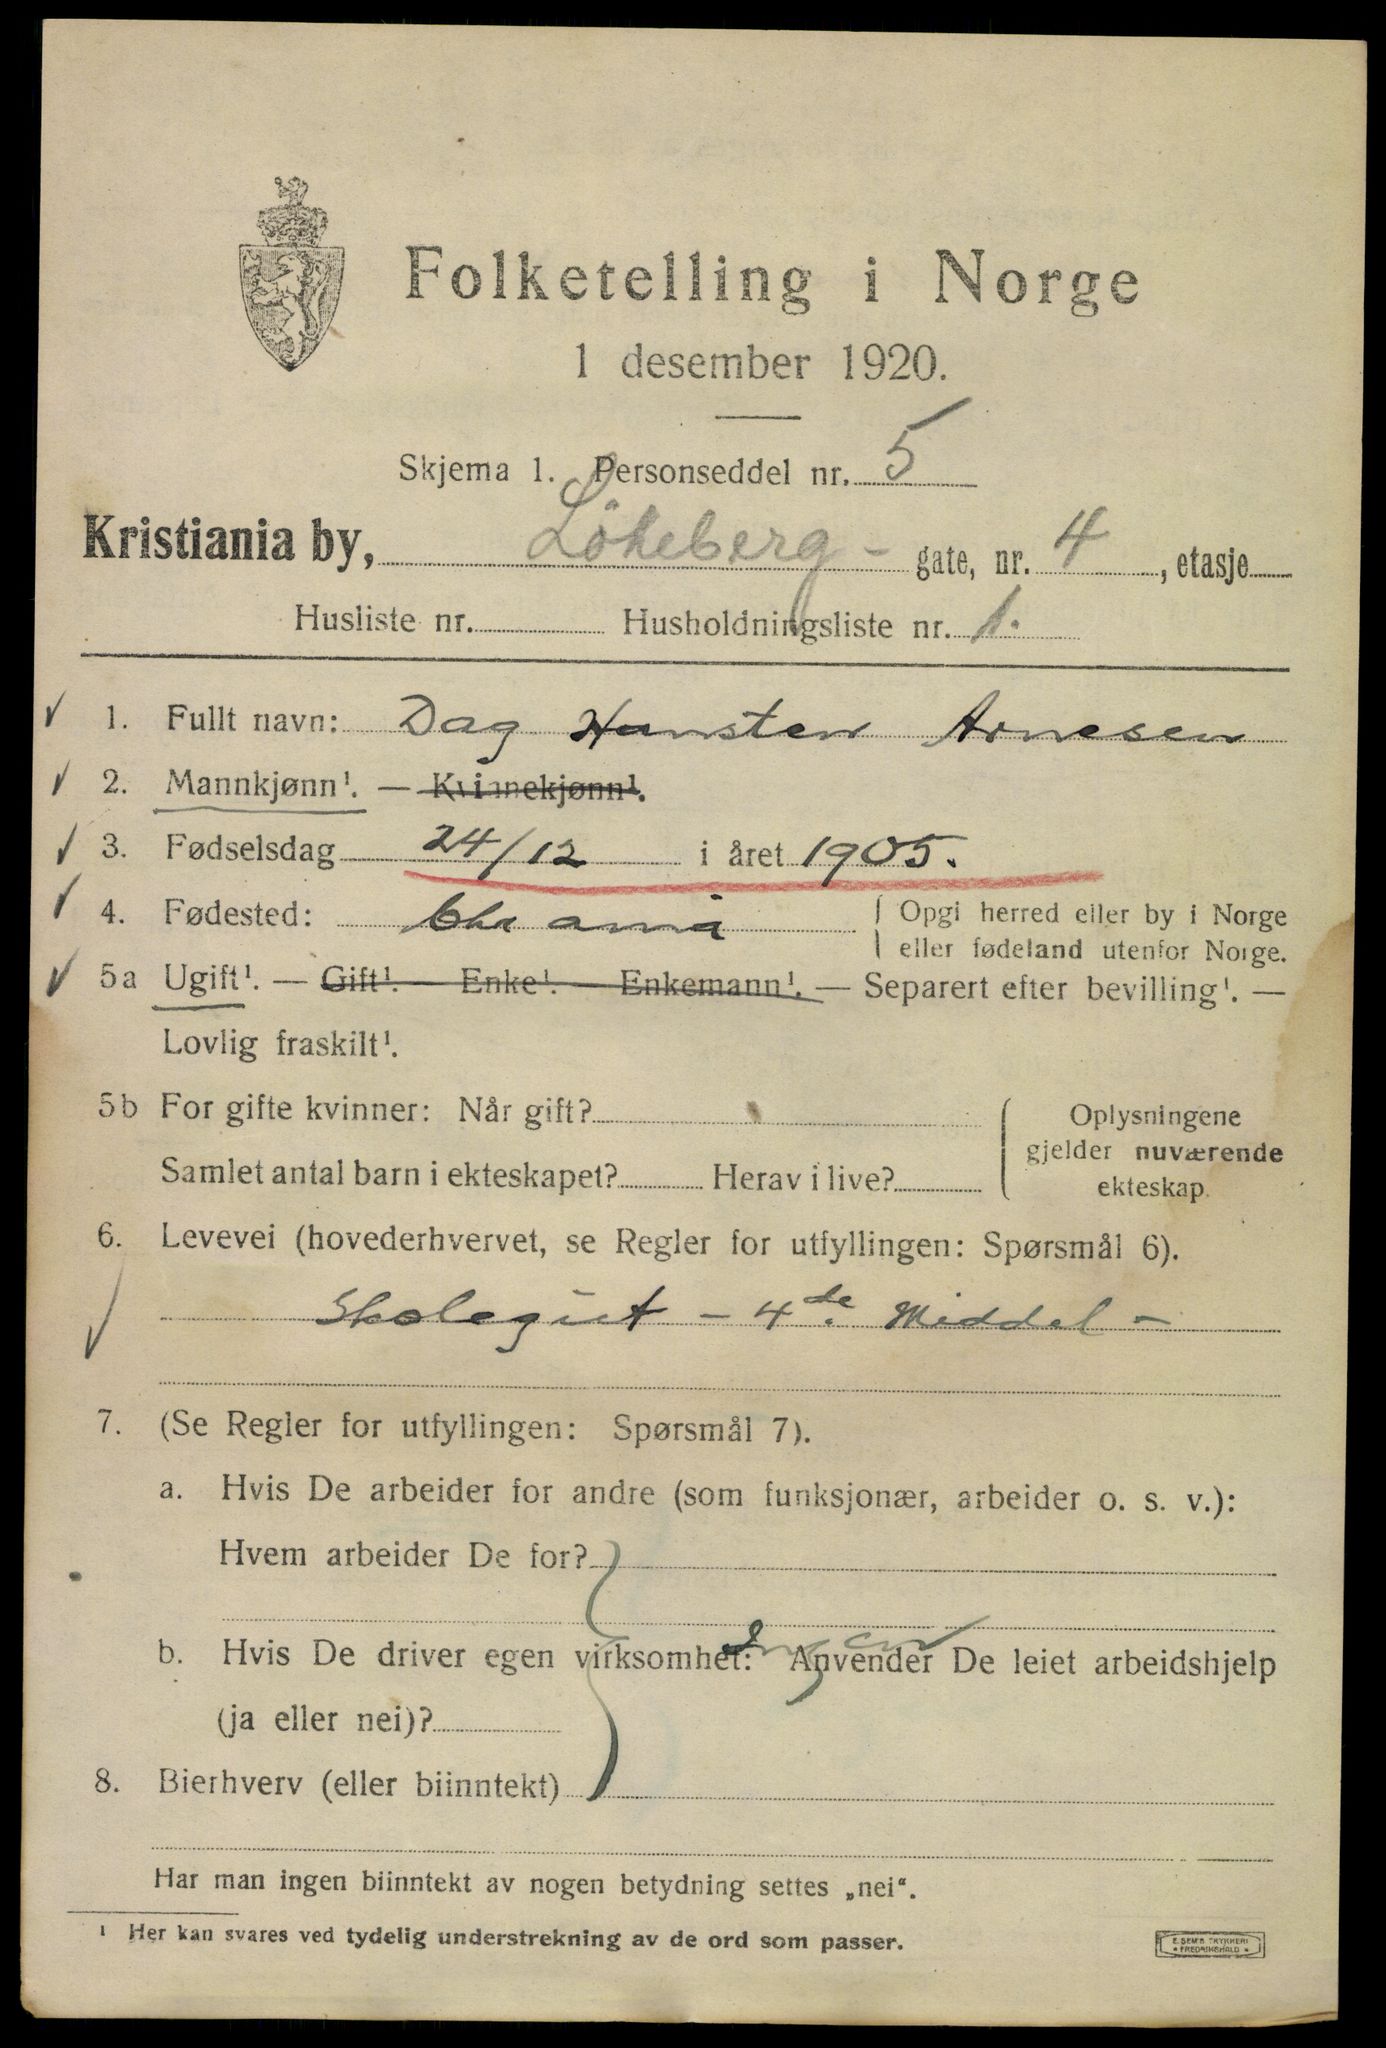 Folketelling i Norge
1 desember 1920.
Skjema 1. Personseddel nr. 5
Kristiania by, Løkeberg - gate, nr. 4, etasje
Husliste nr. Husholdningsliste nr. 1.
1. Fullt navn: Dag Hansten Arnesen
2. Mannkjønn¹. — Kvinnekjønn¹.
3. Fødselsdag 24/12 i året 1905.
4. Fødested: Chr ania { Opgi herred eller by i Norge
eller fødeland utenfor Norge.
5a Ugift¹. — Gift¹. — Enke¹. — Enkemann¹. — Separert efter bevilling¹. —
Lovlig fraskilt¹.
5b For gifte kvinner: Når gift?
Samlet antal barn i ekteskapet? Herav i live?
Oplysningene
gjelder nuværende
ekteskap.
6. Levevei (hovederhvervet, se Regler for utfyllingen: Spørsmål 6).
Skolegut - 4de. Middel -
7. (Se Regler for utfyllingen: Spørsmål 7).
a. Hvis De arbeider for andre (som funksjonær, arbeider o. s. v.):
Hvem arbeider De for?
Ingen
b. Hvis De driver egen virksomhet: Anvender De leiet arbeidshjelp
(ja eller nei)?
8. Bierhverv (eller biinntekt)
Har man ingen biinntekt av nogen betydning settes „nei“.
¹ Her kan svares ved tydelig understrekning av de ord som passer.
E. SEM'S TRYKKERI
* FREDRIKSHALD *